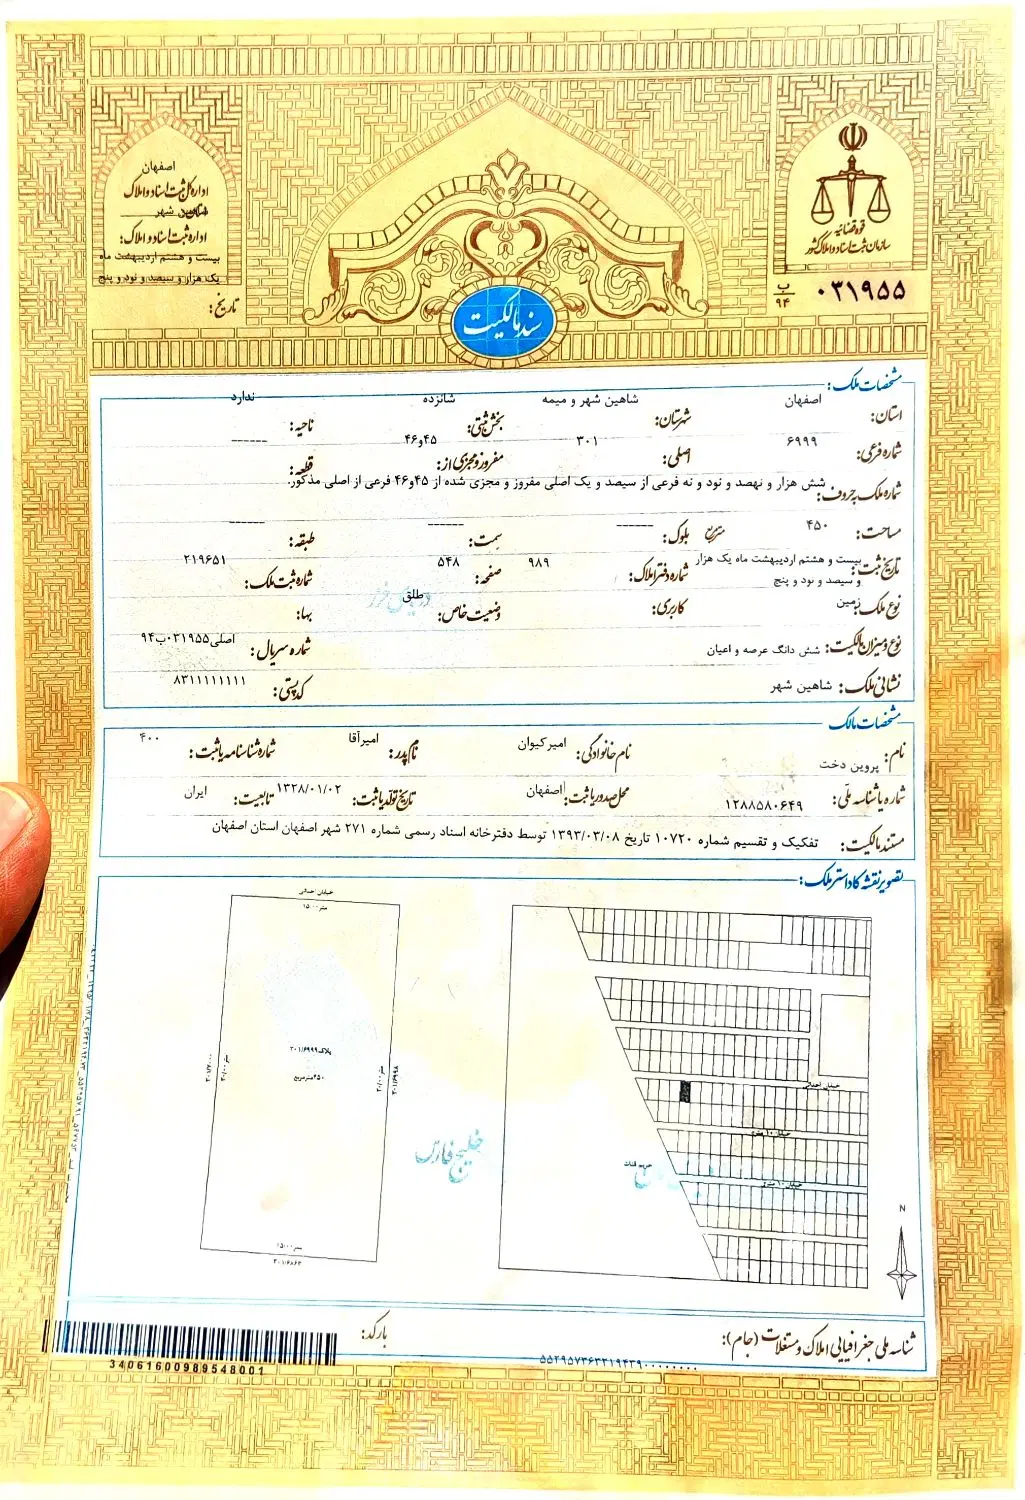 قوه قضائیه
سازمان ثبت اسناد و املاک کشور
ب
۹۴
۰۳۱۹۵۵
اصفهان
اداره کل ثبت اسناد و املاک
شاهین شهر
اداره ثبت اسناد و املاک:
بیست و هشتم اردیبهشت ماه
یک هزار و سیصد و نود و پنج
تاریخ:
سند مالکیت
مشخصات ملک:
استان: اصفهان شهرستان: شاهین شهر و میمه بخش ثبتی: شانزده ناحیه: ندارد
شماره فرعی: ۶۹۹۹ اصلی: ۳۰۱ مفروز و مجزی از: ۴۵و۴۶ قطعه: ------
شماره ملک به حروف: شش هزار و نهصد و نود و نه فرعی از سیصد و یک اصلی مفروز و مجزی شده از ۴۵و۴۶ فرعی از اصلی مذکور.
مساحت: ۴۵۰ متر مربع بلوک: ------ سمت: ------ طبقه: ------
تاریخ ثبت: بیست و هشتم اردیبهشت ماه یک هزار و سیصد و نود و پنج شماره دفتر املاک: ۹۸۹ صفحه: ۵۴۸ شماره ثبت ملک: ۲۱۹۶۵۱
نوع ملک: زمین کاربری: وضعیت خاص: طلق بها:
نوع و میزان مالکیت: شش دانگ عرصه و اعیان شماره سریال: اصلی۰۳۱۹۵۵ب۹۴
نشانی ملک: شاهین شهر کد پستی: ۸۳۱۱۱۱۱۱۱۱
مشخصات مالک
نام: پروین دخت نام خانوادگی: امیرکیوان نام پدر: امیرآقا شماره شناسنامه یا ثبت: ۴۰۰
شماره یا شناسه ملی: ۱۲۸۸۵۸۰۶۴۹ محل صدور یا ثبت: اصفهان تاریخ تولد یا ثبت: ۱۳۲۸/۰۱/۰۲ تابعیت: ایران
مستند مالکیت: تفکیک و تقسیم شماره ۱۰۷۲۰ تاریخ ۱۳۹۳/۰۳/۰۸ توسط دفترخانه اسناد رسمی شماره ۲۷۱ شهر اصفهان استان اصفهان
تصویر نقشه کاداستر ملک:
خیابان احداثی
۱۵.۰۰متر
پلاک۳۰۱/۶۹۹۹
۴۵۰مترمربع
۳۰۱/۷۰۰۰
۳۰/۰۰متر
۳۰/۰۰متر
۳۰۱/۶۹۹۸
۱۵.۰۰متر
۳۰۱/۶۸۶۳
خلیج فارس
خیابان احداثی
خیابان ۱۰ متری
حریم قنات
خیابان ۱۰ متری
N
شناسه ملی جغرافیایی املاک و مستغلات (جام):
۵۵۴۹۵۷۳۶۳۲۱۹۴۳۹۰۰۰۰۰۰۰۰
بارکد:
34061600989548001